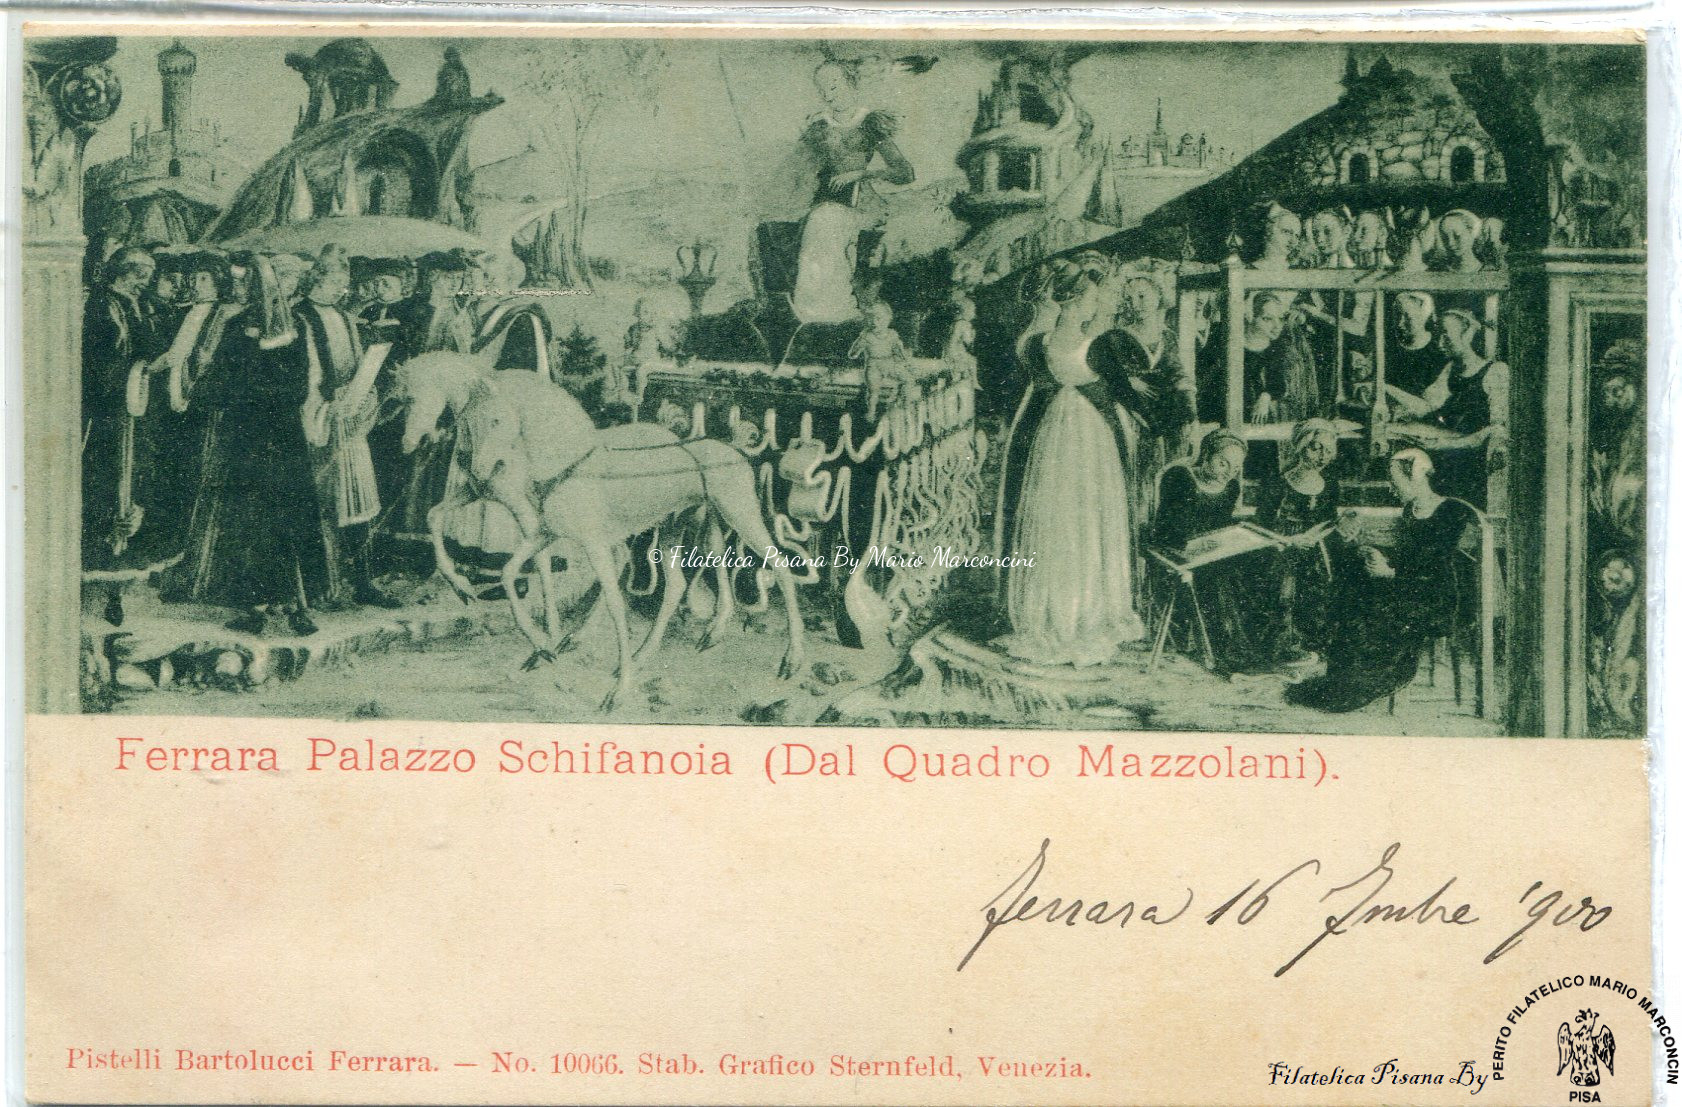 © Filatelica Pisana By Mario Marconcini
Ferrara Palazzo Schifanoia (Dal Quadro Mazzolani).
Ferrara 16 7mbre '900
Pistelli Bartolucci Ferrara. — No. 10066. Stab. Grafico Sternfeld, Venezia.
Filatelica Pisana By
PERITO FILATELICO MARIO MARCONCIN
PISA